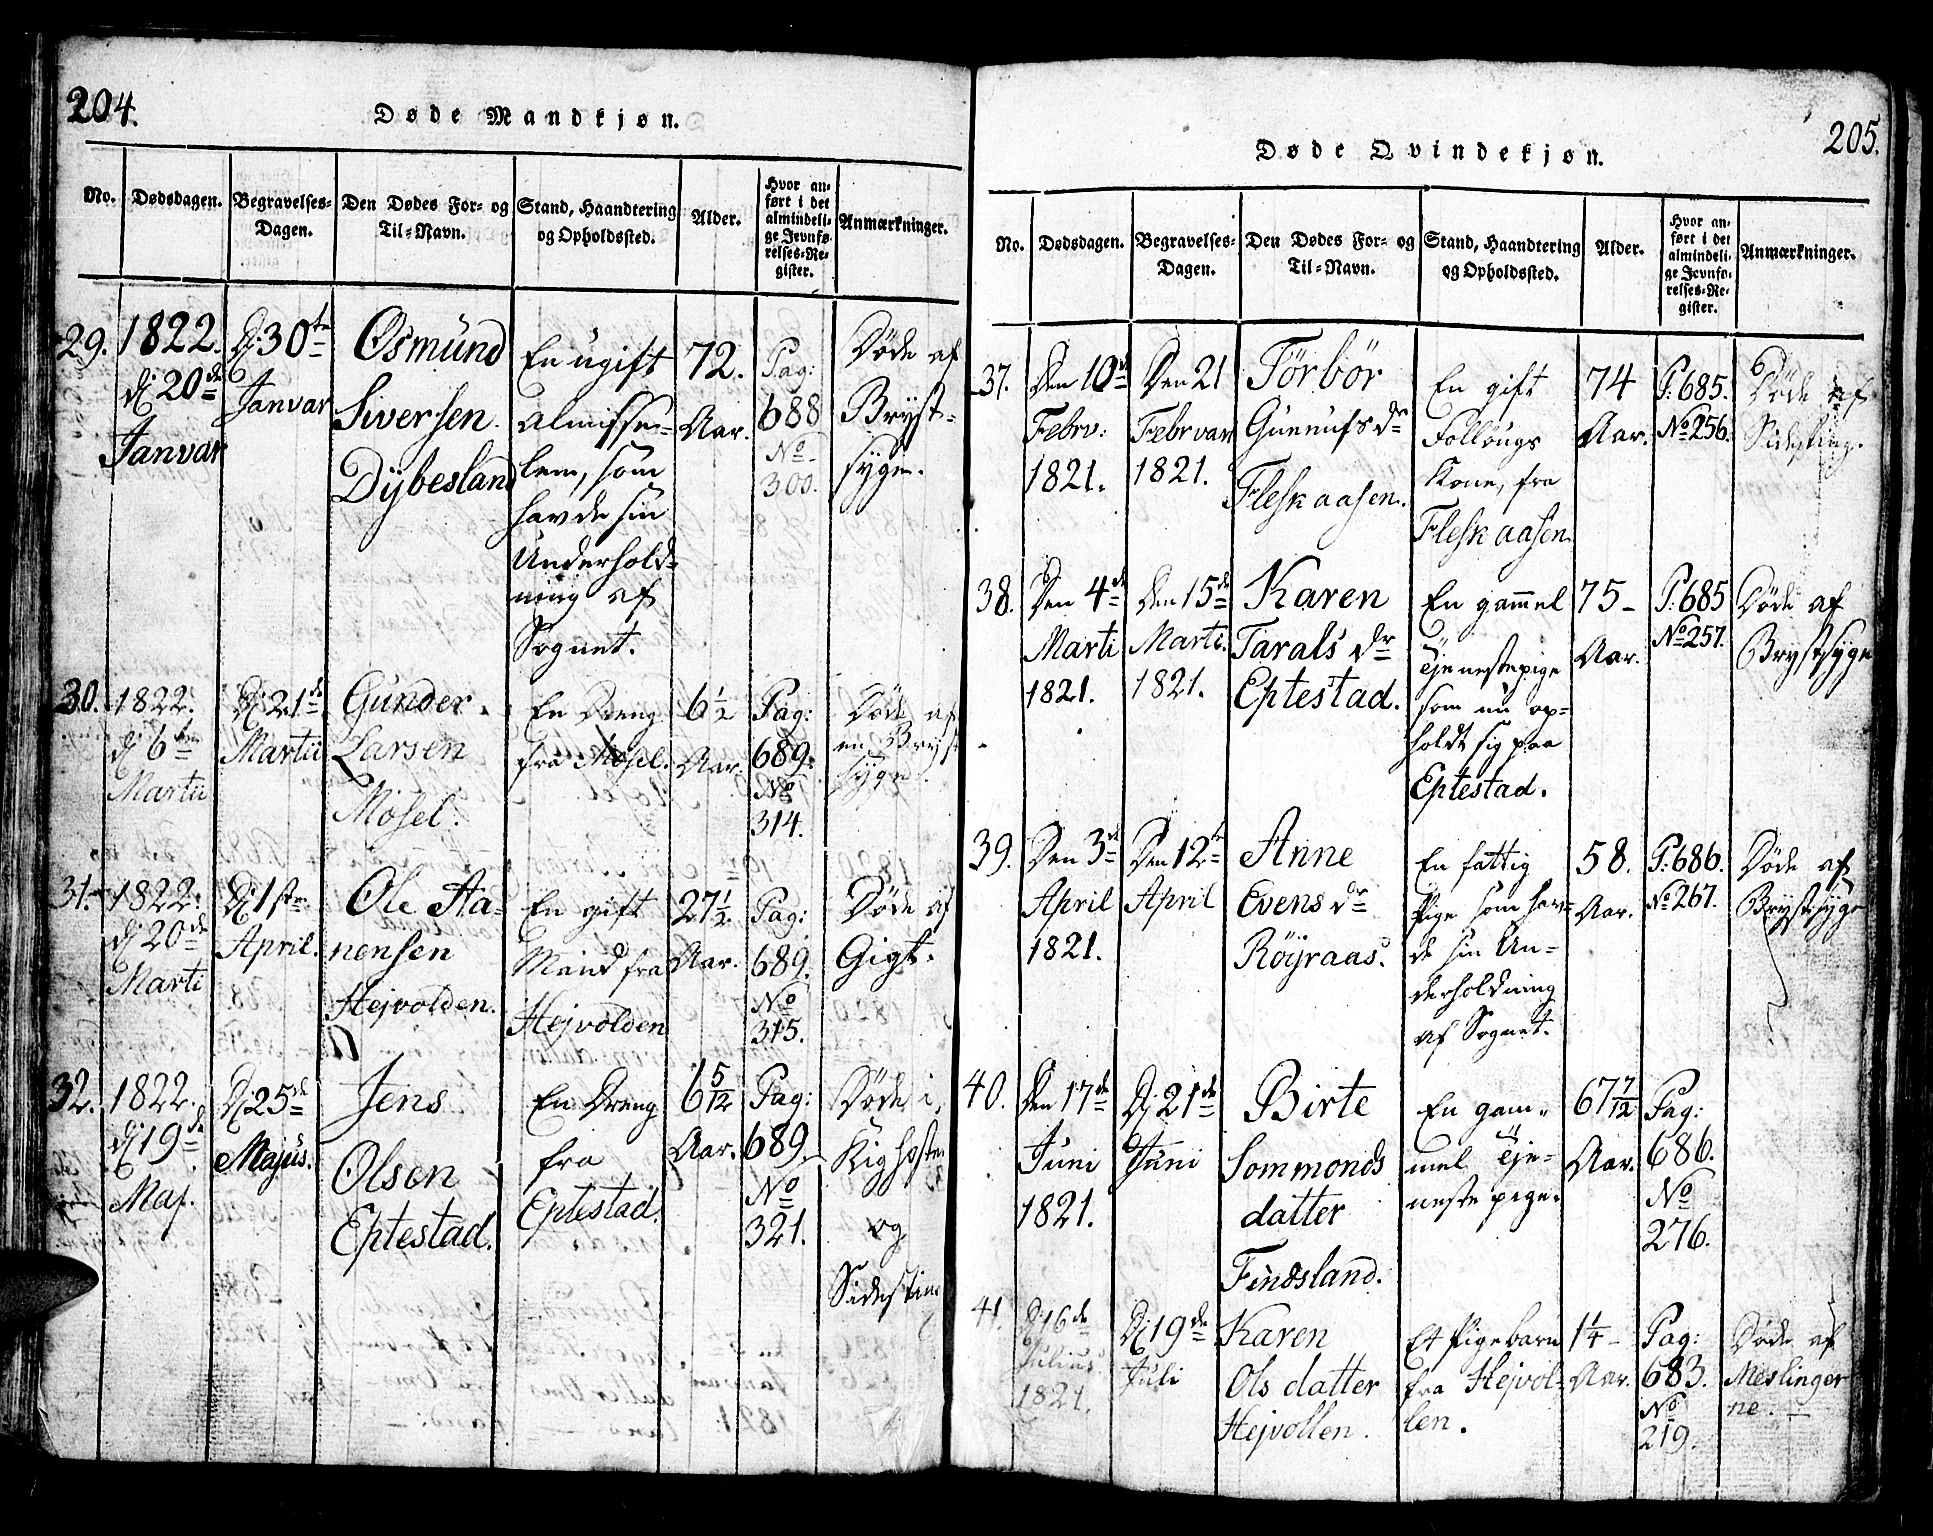 204.
Døde Mandkjøn.
No. Dødsdagen. Begravelses-Dagen. Den Dødes For- og Til-Navn. Stand, Haandtering og Opholdssted. Alder. Hvor anført i det almindelige Jevnførelses-Register. Anmærkninger.
29.
1822.
Dj 20de
Janvar
Dj 30te
Janvar
Osmünd
Siversen
Dÿbesland
En ugift
Almisse-
lem, som
havde sin
Underhold-
ning af
Sognet.
72.
Aar.
Pag:
688
No
300.
Døde af
Bryst-
syge.
30.
1822.
Dj 6te
Martii
Dj 21de
Martii
Gunder
Larsen
Mösel.
En Dreng
fra Mösel.
6 1/2
Aar.
Pag:
689.
No
314.
Døde af
en Bryst
syge.
31.
1822.
Dj 20de
Marti
Dj 1ste
April.
Ole Aa-
nensen
Hejvolden.
En gift
Mand fra
Hejvolden
27 1/2
Aar.
Pag:
689.
No
315.
Døde af
Gigt.
32.
1822.
Dj 19de
Maj.
Dj 25de
Majus.
Jens
Olsen
Eptestad.
En Dreng
fra
Eptestad.
6 5/12
Aar.
Pag:
689.
No
321.
Døde i
Kighoste
og
Sidesting
205.
Døde Qvindekjøn.
No. Dødsdagen. Begravelses-Dagen. Den Dødes For- og Til-Navn. Stand, Haandtering og Opholdssted. Alder. Hvor anført i det almindelige Jevnførelses-Register. Anmærkninger.
37.
Den 10de
Febrv:
1821.
Den 21
Febrvar
1821.
Törbör
Gunnufs dr
Flesk aasen.
En gift
Follougs
Kone, fra
Flesk aasen.
74
Aar.
P: 685.
No 256.
Døde af
Sidesting.
38.
Den 4de
Marti
1821.
Den 15de
Marti.
1821.
Karen
Tarals dr
Eptestad.
En gammel
Tjenestepige
som nu op-
holdt sig paa
Eptestad.
75-
Aar.
P: 685
No 257.
Døde af
Brystsyge
39.
Den 3de
April
1821.
Den 12te
April
Anne
Evens dr
Röÿraas.
En fattig
Pige som hav-
de sin Un-
derholdning
af Sognet.
58.
Aar.
P: 686.
No 267.
Døde af
Brystsyge
40.
Den 17de
Juni
1821.
Dj 21de
Juni
Birte
Sommonds
datter
Findsland.
En gam-
mel Tje-
neste pige.
67 7/12
Aar.
Pag:
686.
No
276.
41.
Dj 16de
Julius
1821.
Dj 19de
Juli
Karen
Ols datter
Hejvollen.
Et Pigebarn
fra Hejvol-
len.
1 1/4-
Aar.
Pag:
683.
No
219.
Døde af
Meslinger
ne.